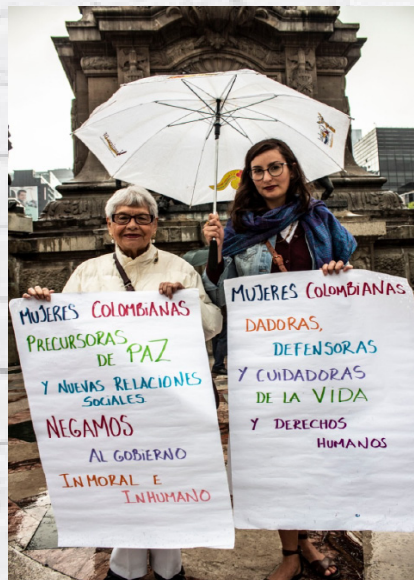 MUJERES COLOMBIANAS
PRECURSORAS
DE PAZ
Y NUEVAS RELACIONES
SOCIALES
NEGAMOS
AL GOBIERNO
INMORAL E
INHUMANO
MUJERES COLOMBIANAS
DADORAS,
DEFENSORAS
Y CUIDADORAS
DE LA VIDA
Y DERECHOS
HUMANOS